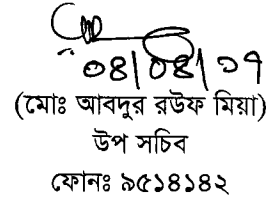 ০৪|০৪|১৭
(মোঃ আবদুর রউফ মিয়া)
উপ সচিব
ফোনঃ ৯৫১৪১৪২